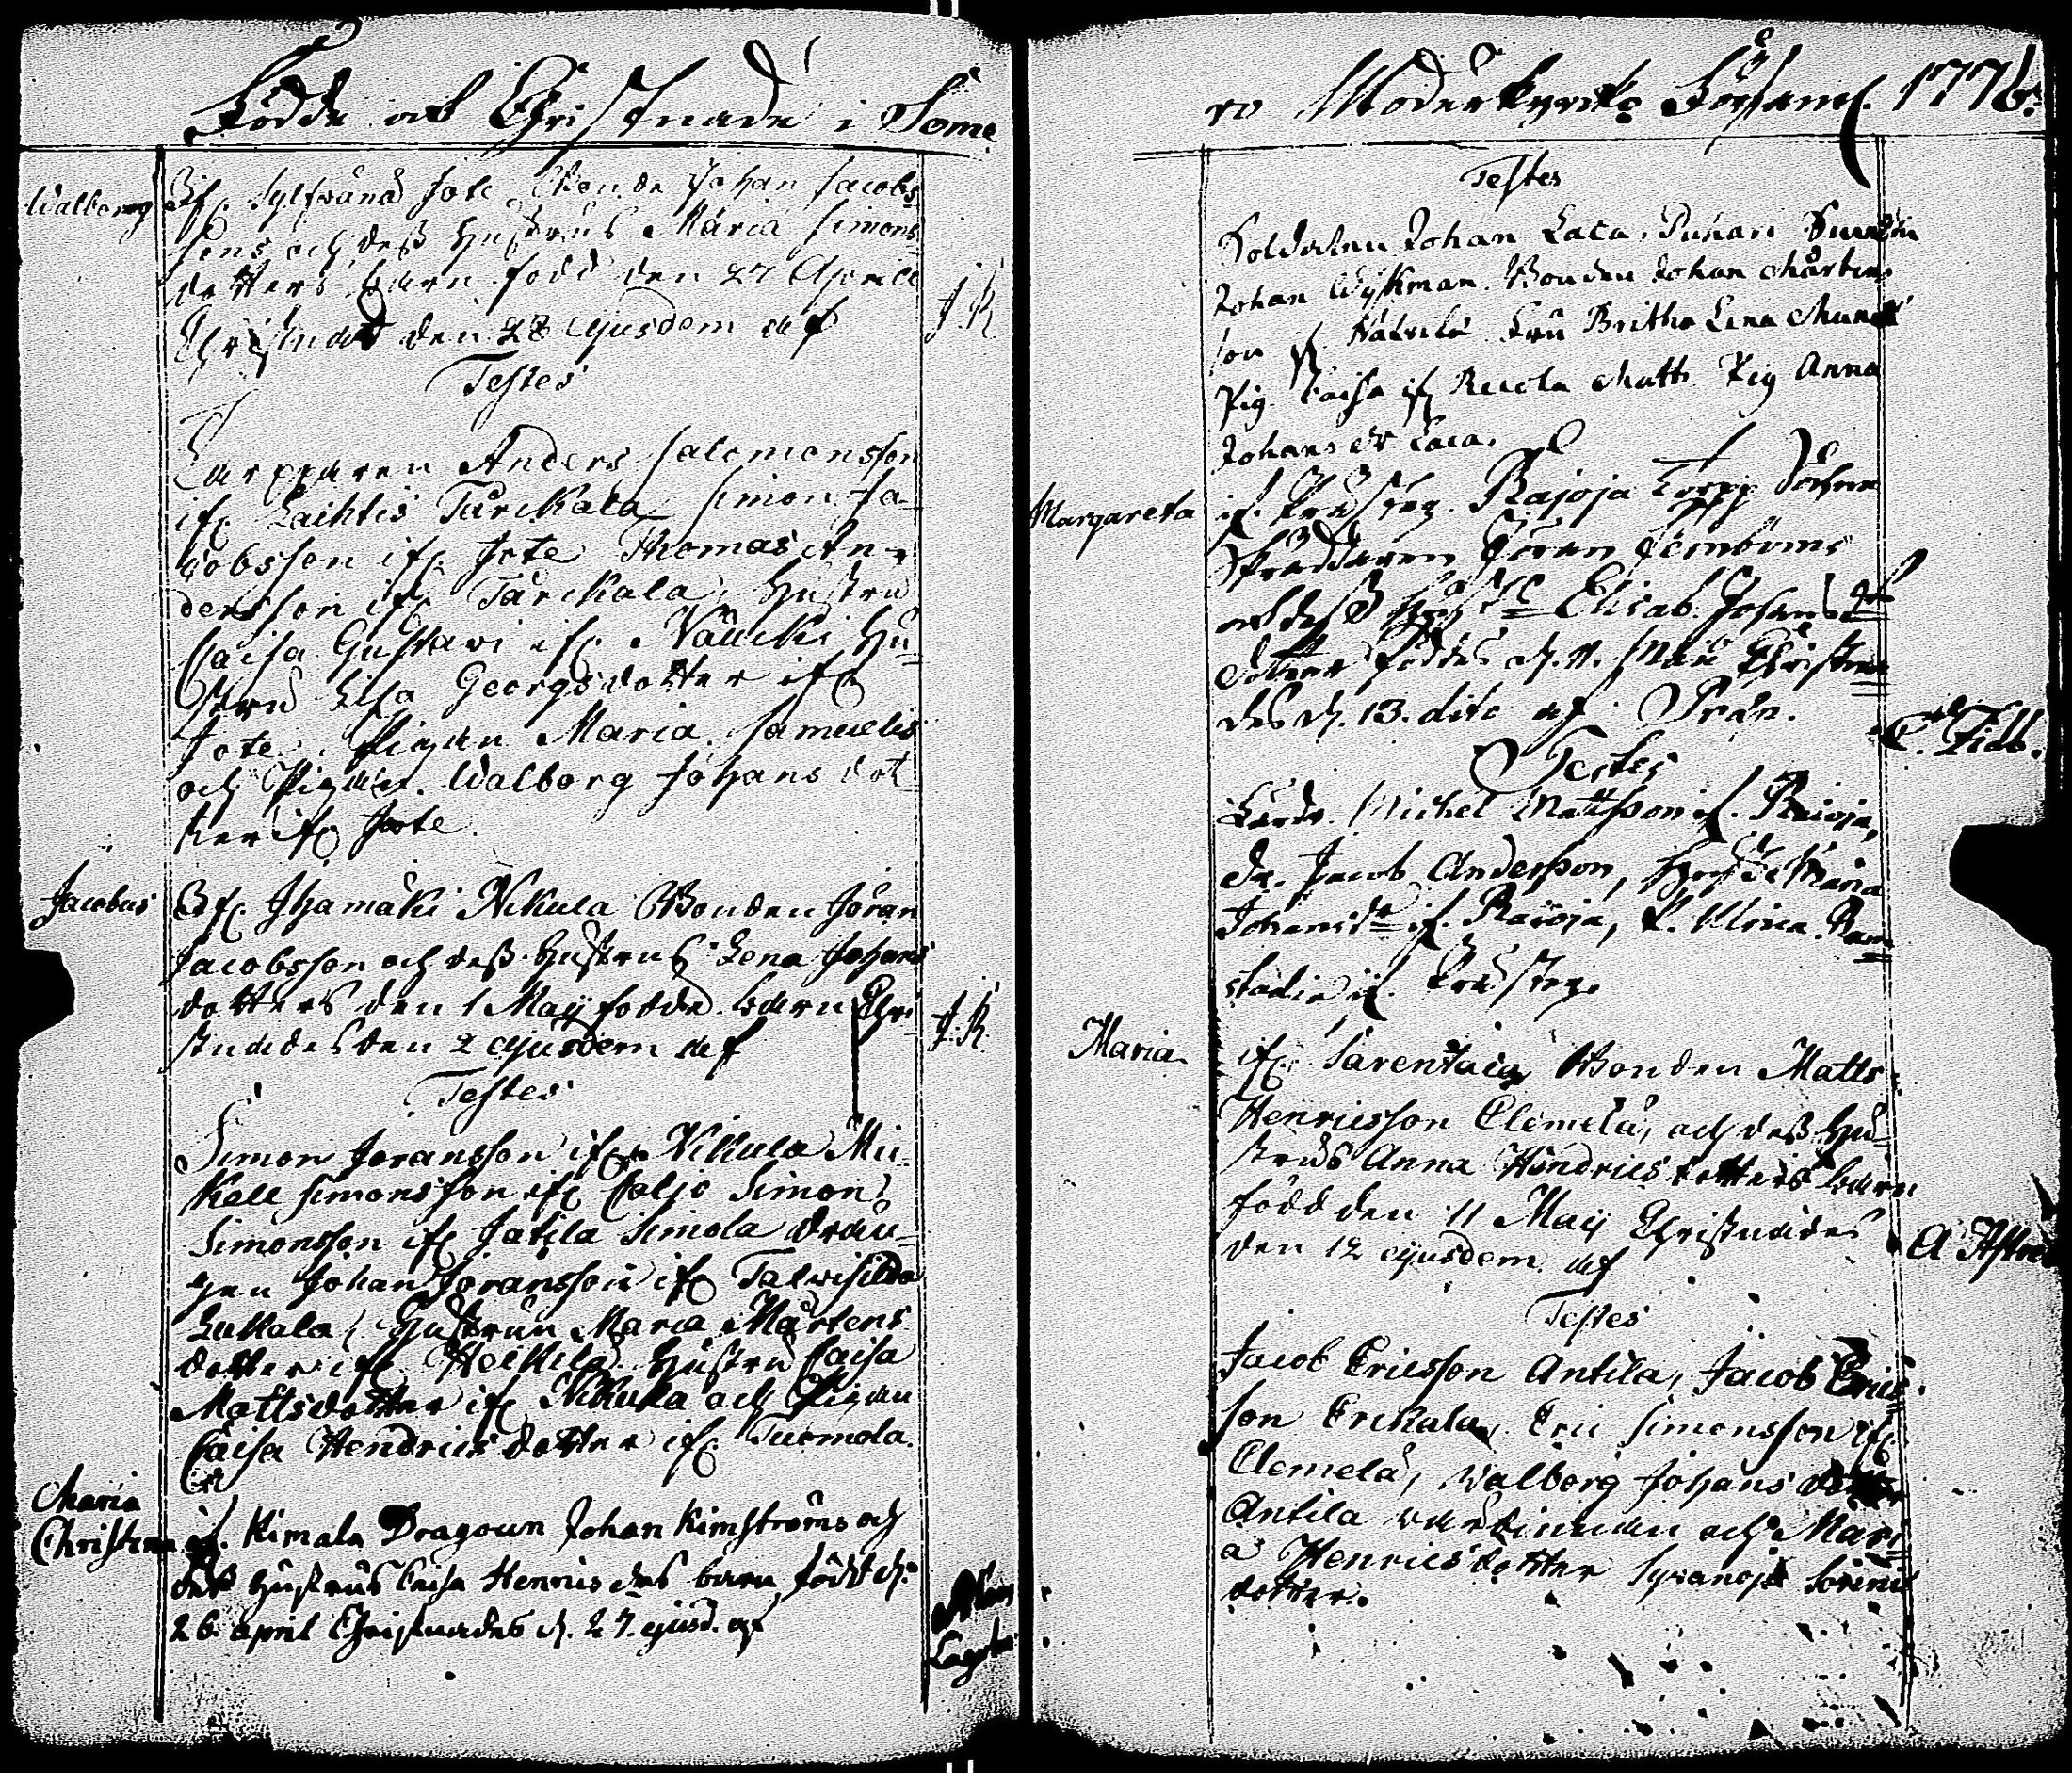 Födde och Christnade i Some
Walborg
Ifr. Sylfvänä Jote Bonde Johan Jacobs
sons och dess Hustrus Maria Simons
dotters barn född den 27 Aprill
Christnad den 28 ejusdem af
J. K.
Testes
Torpparen Anders Salomonsson
ifr. Laihtis Tärckala Simon Ja-
cobsson ifr. Jote Thomas An-
dersson ifr. Tärckala, Hustru
Caisa Gustavi ifr. Hu-
stru Lisa Georgsdotter ifr.
Jote. Pigan Maria Samuelis
och Pigan Walborg Johans dot
ter ifr. Jote.
Jacobus
Ifr. Ihamäki Nikula Bonden Jöran
Jacobsson och dess Hustrus Lena Johans
dotters den 1 Maij födde barn Chri
stnades den 2 ejusdem af
J. K.
Testes
Simon Joransson ifr. Nikula Mi-
kell Simonsson ifr. Caljo Simon
Simonsson ifr. Jatila Simola Drän-
gen Johan Joransson ifr. Talvisilda
Lukala, Hustrun Maria Mårtens
dotter ifr. Heikilä Hustru Caisa
Mattsdotter ifr. Nikula och Pigan
Caisa Hendrics dotter ifr. Tuomola.
Maria
Christina
if. Kimala Dragoun Johan Kimströms och
dess Hustrus Caisa Henrics des barn född d.
26 april Christnades d. 27. ejusd. af
ro Moderkyrko Församl. 1776.
Testes
Soldaten Johan Laca.
Johan Wijkman. Bonden Johan Mårtens
son if. Fru Britha Lena Munck
Pig. Caisa if. Matts Pig Anna
Johans dr Laca.
Margareta
if. Rajoja Torpp
Skreddaren Jöran
och dess Hustr. Elisab. Johans
dotter föddes d. 11. Maii Christna
des d. 13. dito af Prän.
C. Fidb.
Testes
Michel Mattsson if. Raioja,
Dr. Jacob Andersson, Hustr. Maria
Johansdr if. Raioja, P. Ulrica Ram
stadia if.
Maria
ifr. Sarentaca Bonden Matts
Henricsson Clemelä, och dess Hu-
strus Anna Hindrics dotters barn
född den 11 Maij Christnades
den 12 ejusdem af
Testes
Jacob Ericsson Antila, Jacob Erics
son Erikala, Eric Simonsson ifr.
Clemelä, Walborg Johans dotter
Antila värdinnan och Mari
a Henricsdotter
dotter.